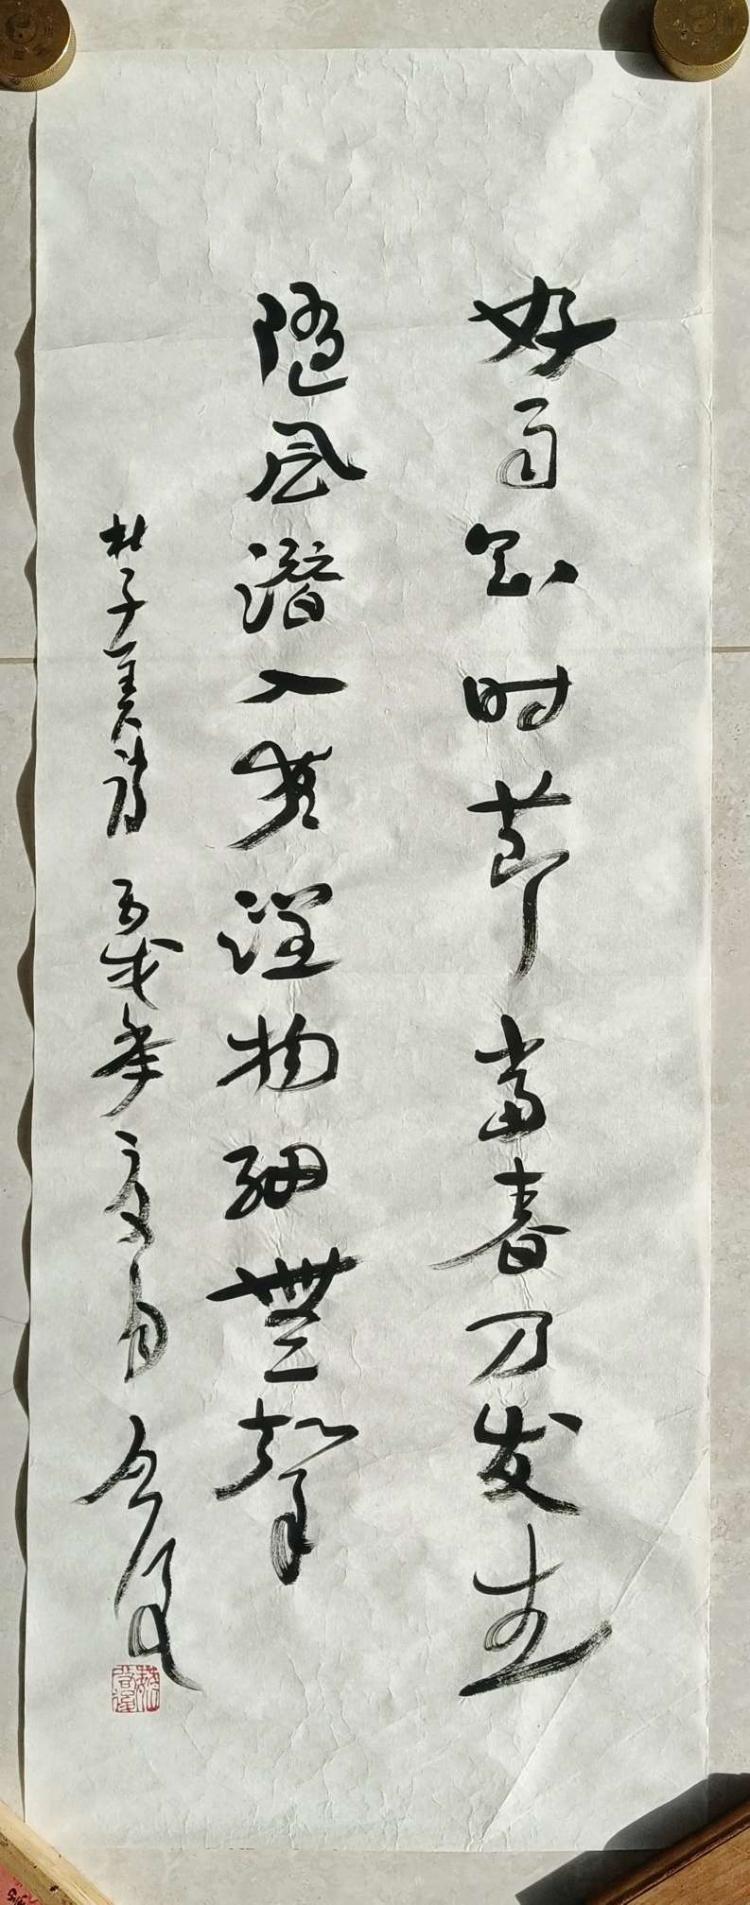 好雨知时节当春乃发生
随风潜入夜润物细無聲
杜子美诗 戊年夏月